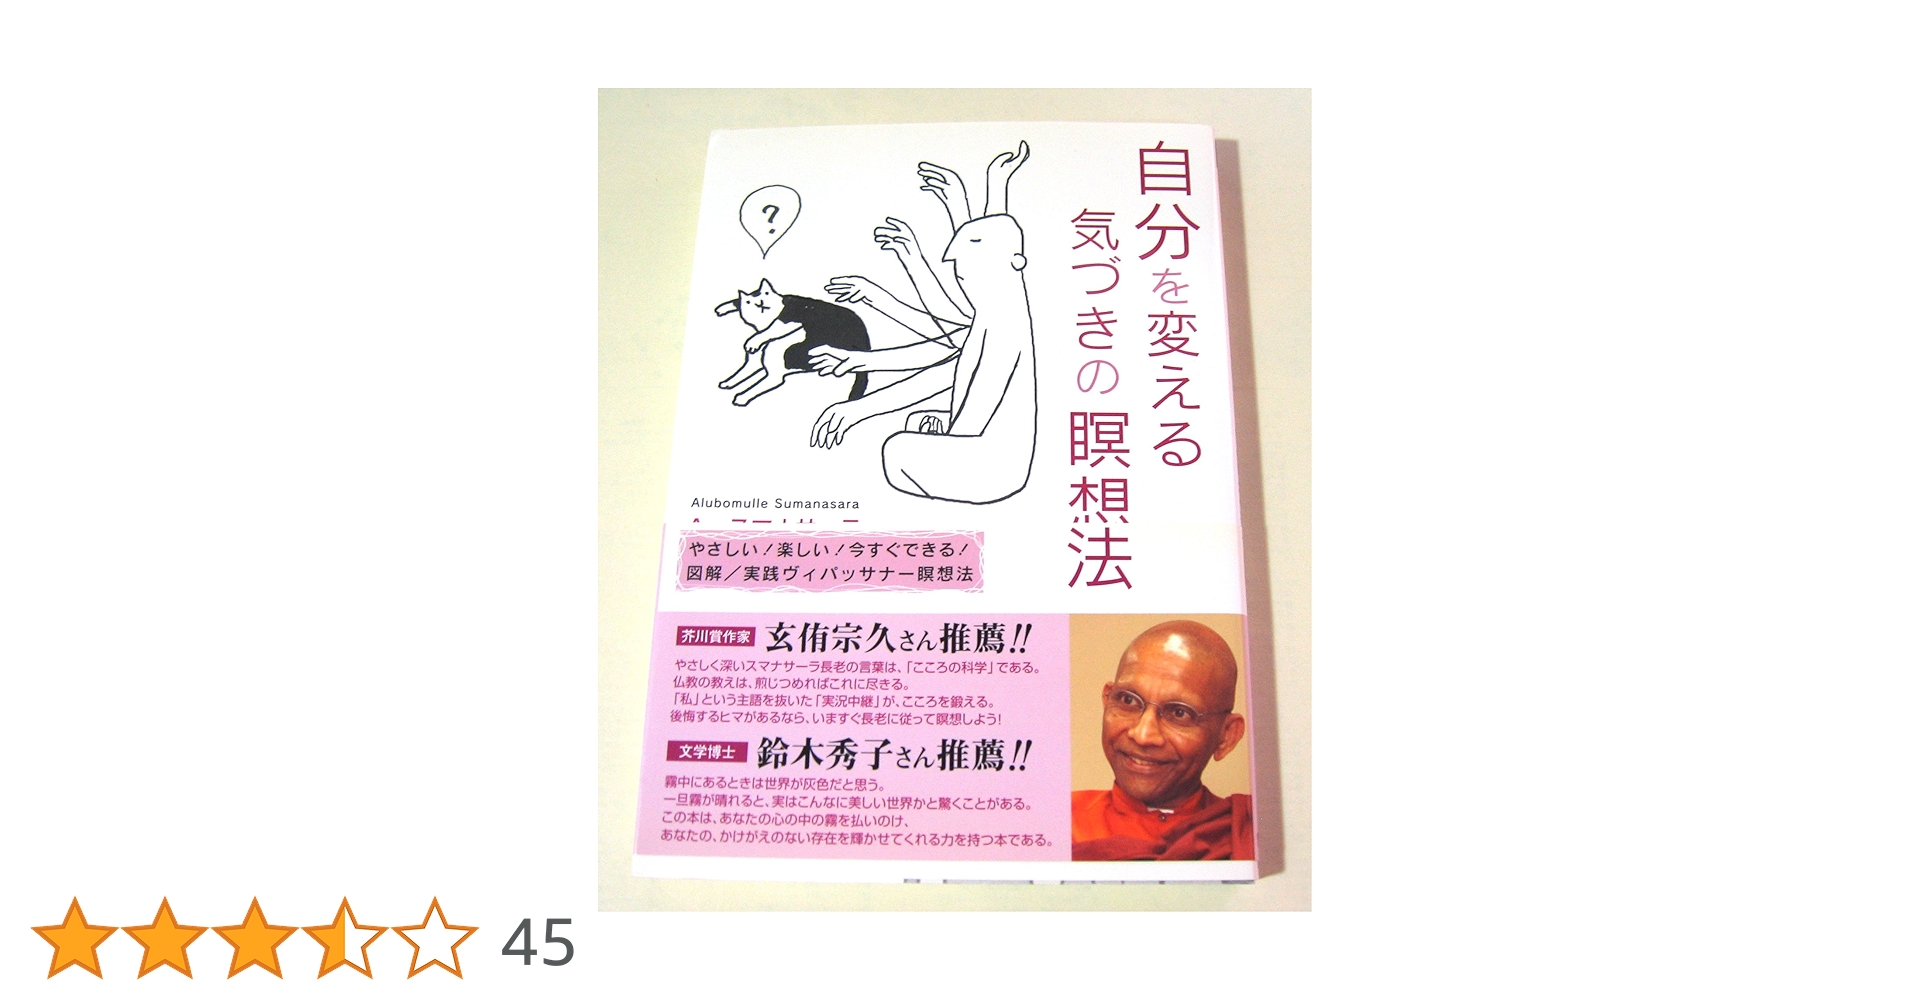 自分を変える
気づきの瞑想法
?
Alubomulle Sumanasara
やさしい!楽しい!今すぐできる!
図解/実践ヴィパッサナー瞑想法
芥川賞作家 玄侑宗久さん推薦!!
やさしく深いスマナサーラ長老の言葉は、「こころの科学」である。
仏教の教えは、煎じつめればこれに尽きる。
「私」という主語を抜いた「実況中継」が、こころを鍛える。
後悔するヒマがあるなら、いますぐ長老に従って瞑想しよう!
文学博士 鈴木秀子さん推薦!!
霧中にあるときは世界が灰色だと思う。
一旦霧が晴れると、実はこんなに美しい世界かと驚くことがある。
この本は、あなたの心の中の霧を払いのけ、
あなたの、かけがえのない存在を輝かせてくれる力を持つ本である。
45